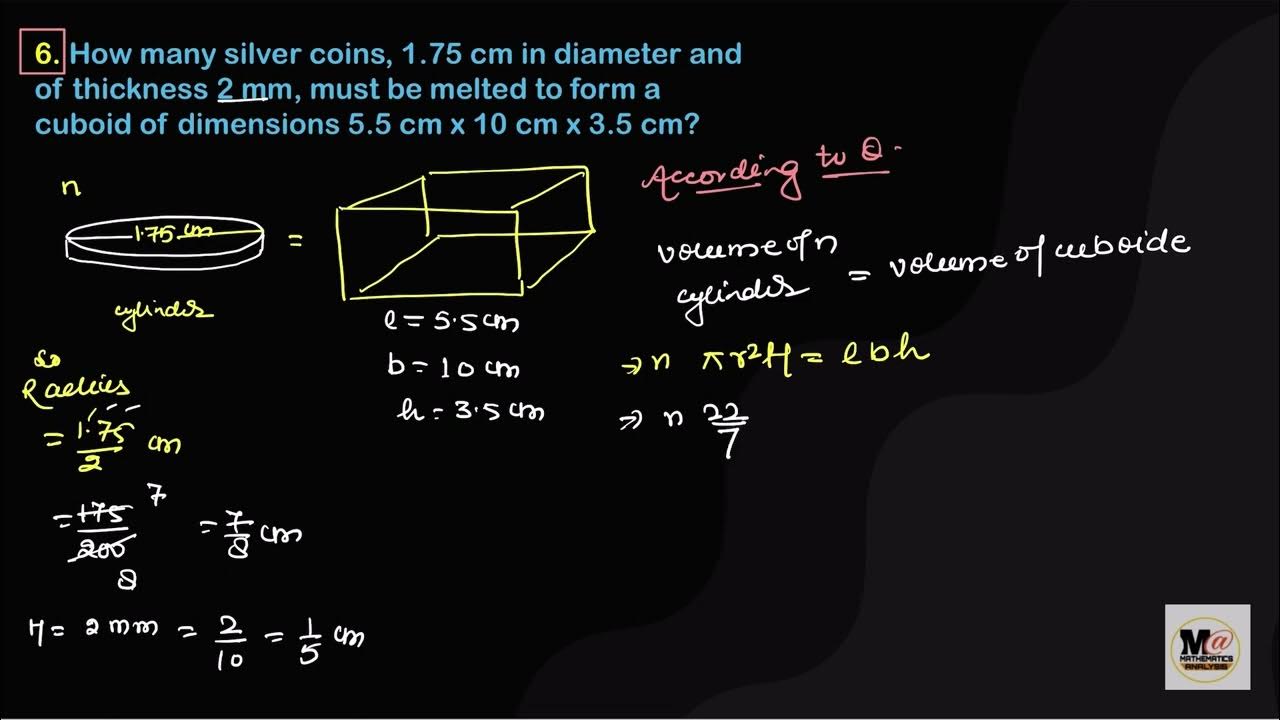 6. How many silver coins, 1.75 cm in diameter and
of thickness 2 mm, must be melted to form a
cuboid of dimensions 5.5 cm x 10 cm x 3.5 cm?
n
1.75 cm
=
cylinder
l = 5.5 cm
b = 10 cm
h = 3.5 cm
So
Radius
= 1.75/2 cm
= 175/200 7 8 = 7/8 cm
H = 2 mm = 2/10 = 1/5 cm
According to Q.
volume of n
cylinder = volume of cuboide
⇒ n πr²H = l b h
⇒ n 22/7
M@
MATHEMATICS
ANALYSIS